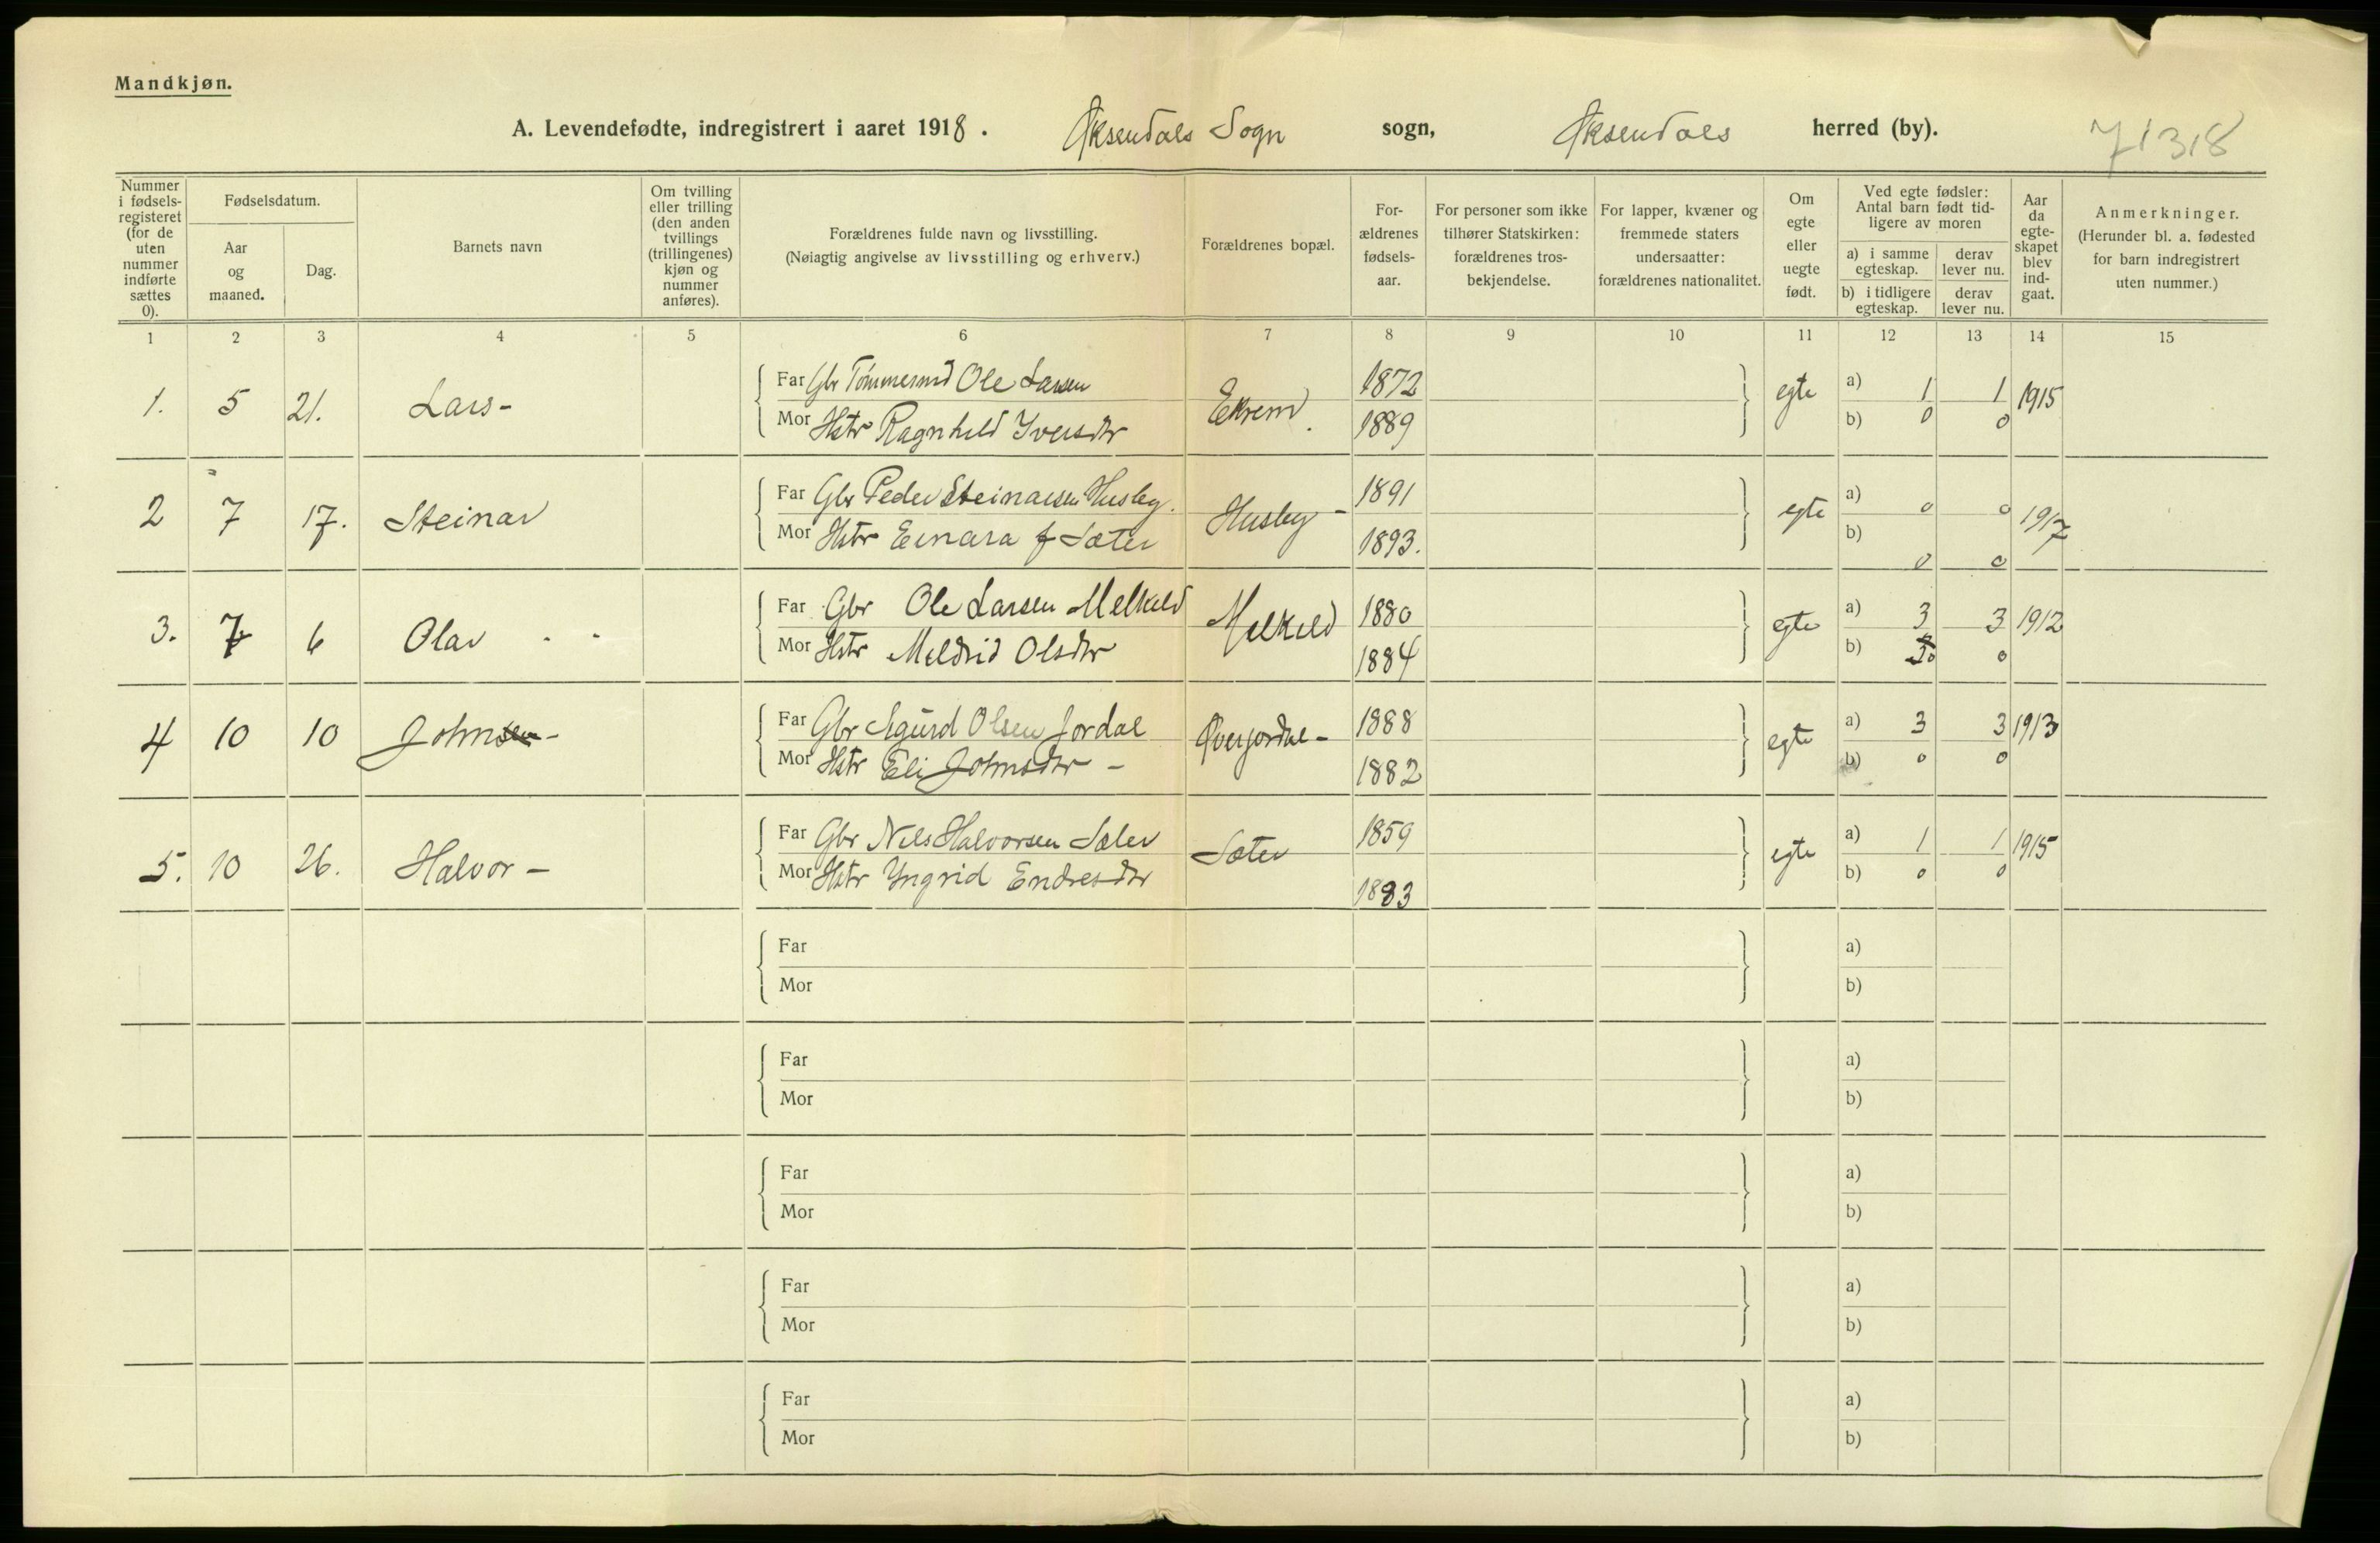 Mandkjøn.
A. Levendefødte, indregistrert i aaret 1918. Øksendals Sogn sogn, Øksendals herred (by). 71318
Nummer i fødsels-registeret (for de uten nummer indførte sættes 0).
Fødselsdatum.
Aar og maaned.
Dag.
Barnets navn
Om tvilling eller trilling (den anden tvillings (trillingenes) kjøn og nummer anføres).
Forældrenes fulde navn og livsstilling.
(Nøiagtig angivelse av livsstilling og erhverv.)
Forældrenes bopæl.
For-ældrenes fødsels-aar.
For personer som ikke tilhører Statskirken: forældrenes tros-bekjendelse.
For lapper, kvæner og fremmede staters undersaatter: forældrenes nationalitet.
Om egte eller uegte født.
Ved egte fødsler: Antal barn født tid-ligere av moren
a) i samme egteskap.
derav lever nu.
b) i tidligere egteskap.
derav lever nu.
Aar da egte-skapet blev ind-gaat.
Anmerkninger.
(Herunder bl. a. fødested for barn indregistrert uten nummer.)
1 2 3 4 5 6 7 8 9 10 11 12 13 14 15
1. 5 21. Lars- Far Gbr Tømmermd Ole Larsen Ekrem. 1872 egte a) 1 1 1915
Mor Hstr Ragnhild Iversdtr 1889 b) 0 0
2 7 17. Steinar Far Gbr Peder Steinarsen Husby. Husby - 1891 egte a) 0 0 1917
Mor Hstr Einara f Sæter 1893. b) 0 0
3. 7 6 Olav Far Gbr Ole Larsen Melkild Melkild 1880 egte a) 3 3 1912
Mor Hstr Meldrid Olsdtr 1884 b) 0 0
4 10 10 Johnsen- Far Gbr Sigurd Olsen Jordal Øverjordal- 1888 egte a) 3 3 1913
Mor Hstr Eli Johnsdtr - 1882 b) 0 0
5. 10 26. Halvor - Far Gbr Nils Halvorsen Sæter Sæter 1859 egte a) 1 1 1915
Mor Hstr Yngrid Endresdtr 1883 b) 0 0
Far a)
Mor b)
Far a)
Mor b)
Far a)
Mor b)
Far a)
Mor b)
Far a)
Mor b)